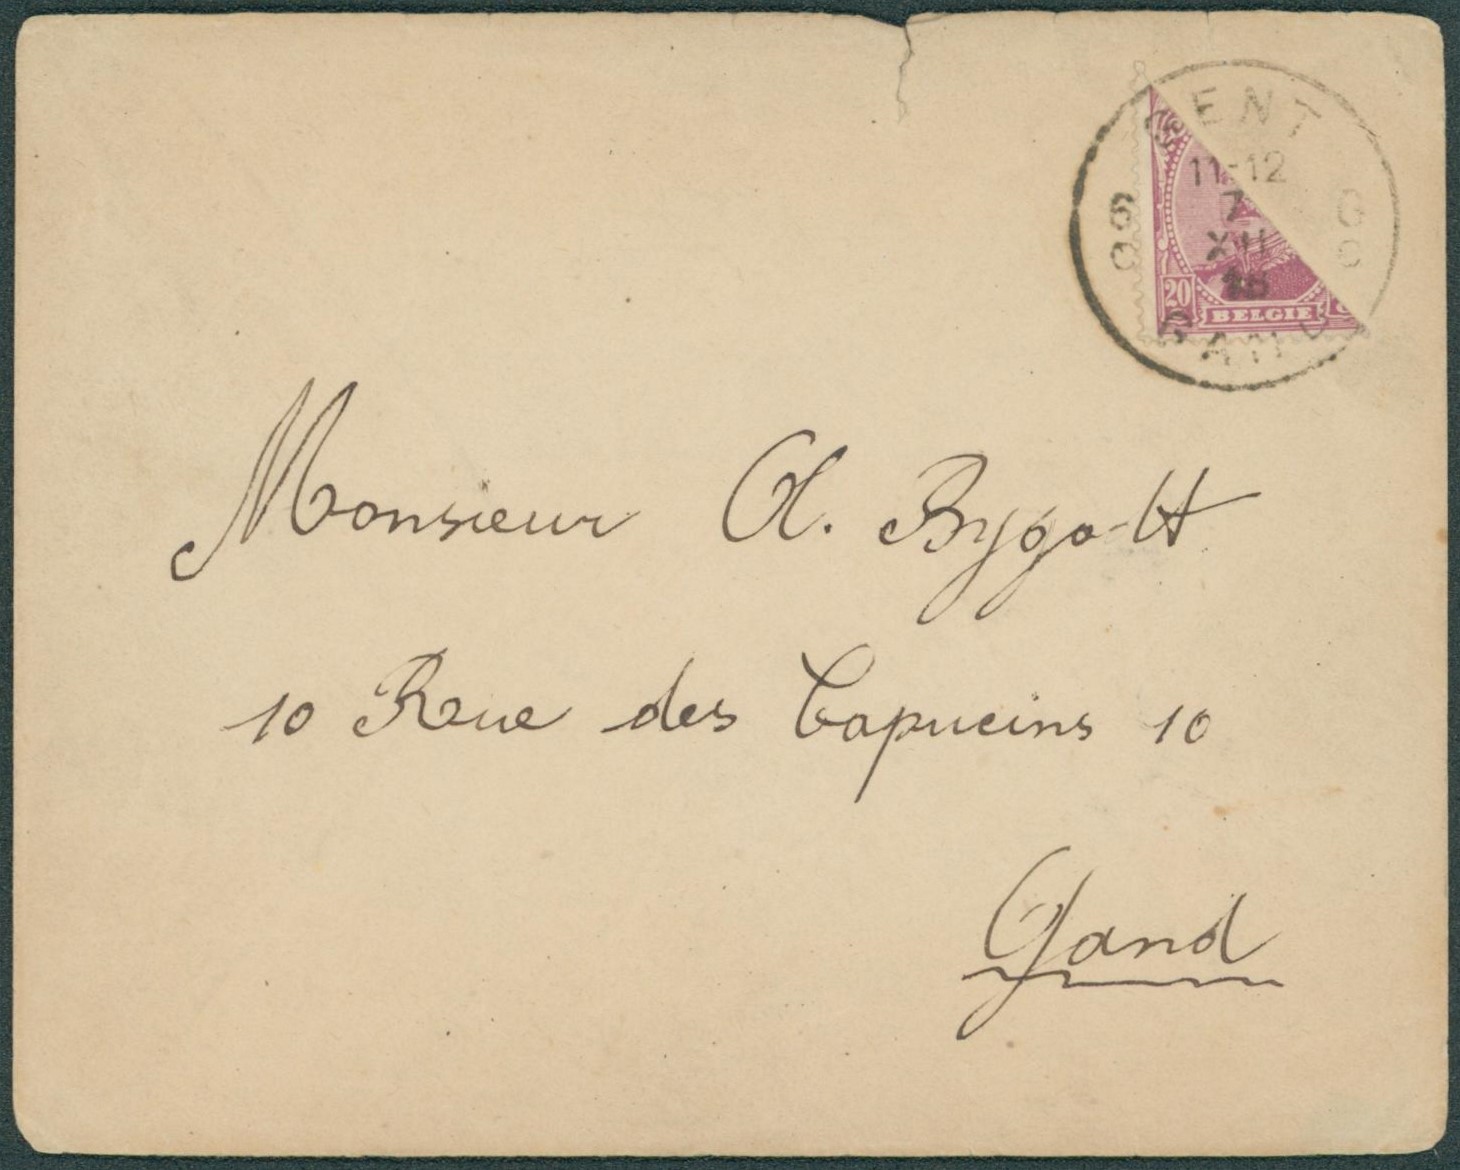 GENT
11-12
7
XII
18
GAND
20
BELGIE
Monsieur A. Bygodt
10 Rue des Capucins 10
Gand